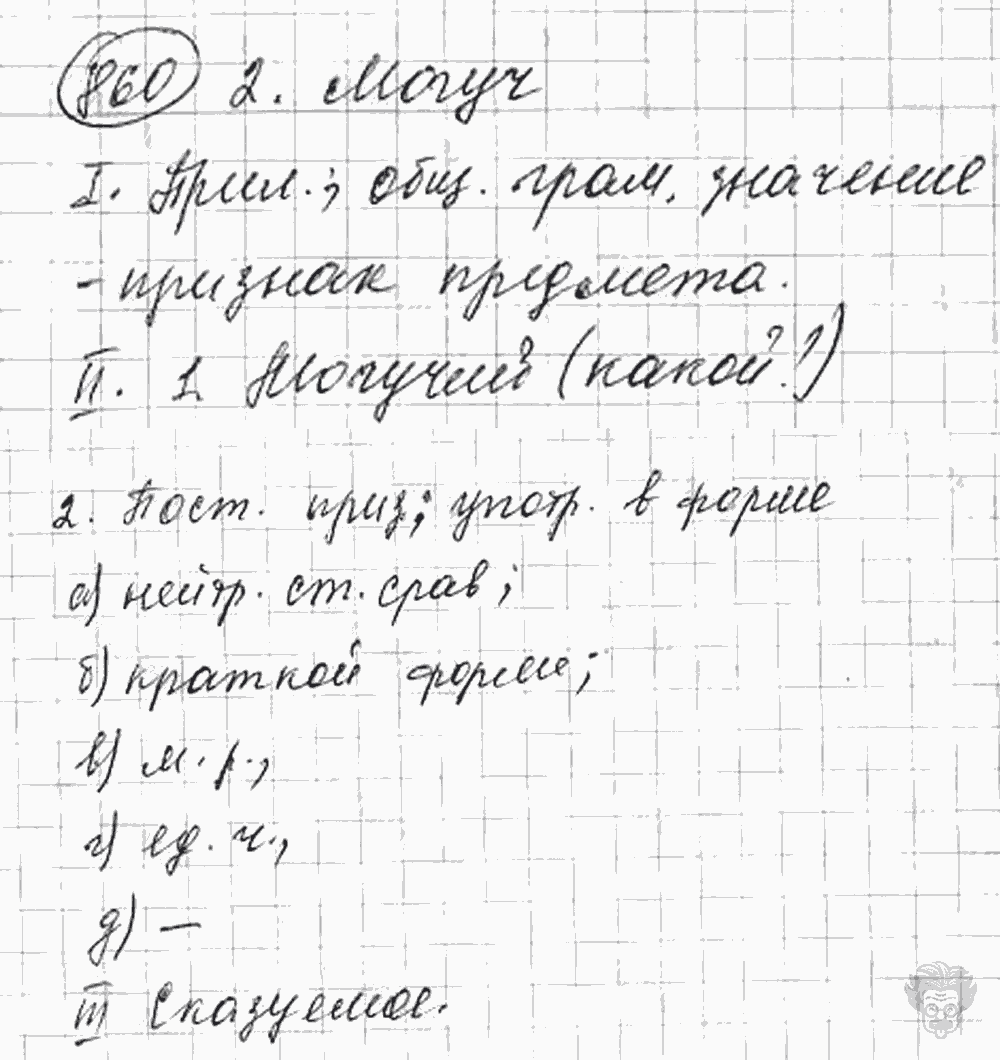 860 2. Могуч
I. Прил.; общ. грам. значение
- признак предмета.
II. 1 Могучий (какой?)
2. Пост. приз.; употр. в форме
а) нейтр. ст. срав;
б) краткой форме;
в) м. р.,
г) ед. ч.,
д) —
III Сказуемое.